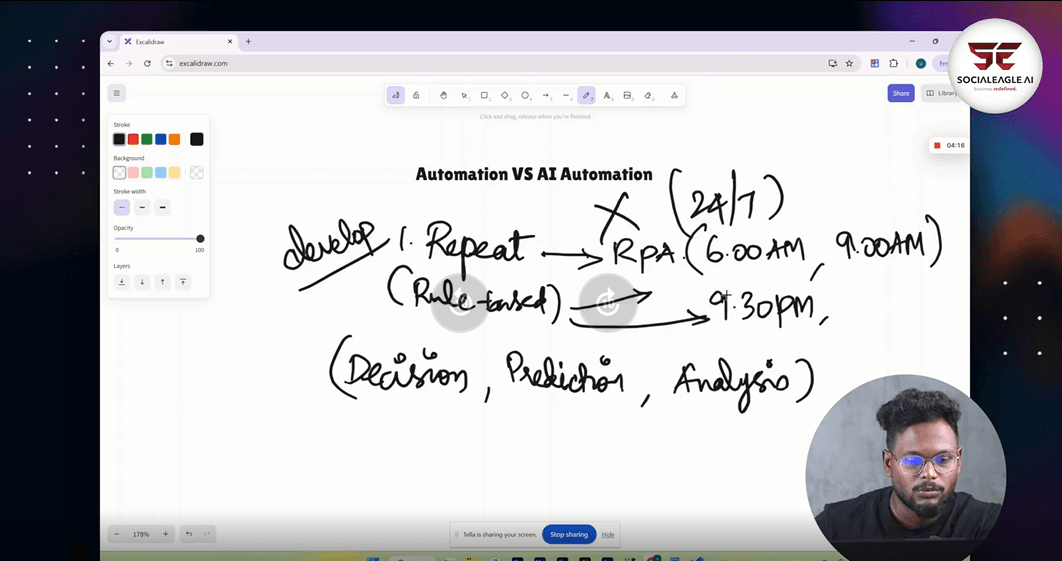 SE
SOCIALEAGLE.AI
business redefined.
Excalidraw
excalidraw.com
Share
Library
Click and drag, release when you're finished
04:16
Stroke
Background
Stroke width
Opacity
0 100
Layers
Automation VS AI Automation
(24/7)
develop 1. Repeat → RPA. (6.00AM, 9.00AM)
(Rule-based) → 9.30PM,
(Decision, Prediction, Analysis)
178%
Tella is sharing your screen. Stop sharing Hide